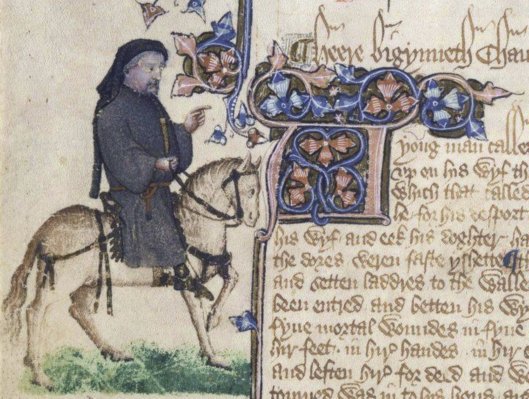 Heere bigynneth Chau
A yong man calle
up on his wyf th
Which that calle
for his desport
his wyf and eek his doghter
the dores weren faste yshette th
and setten laddres to the walle
been entred and betten his wy
fyue mortal woundes in fyue
hir feet in hir handes in hir
and leften hir for deed and We
torned was in to his hous and